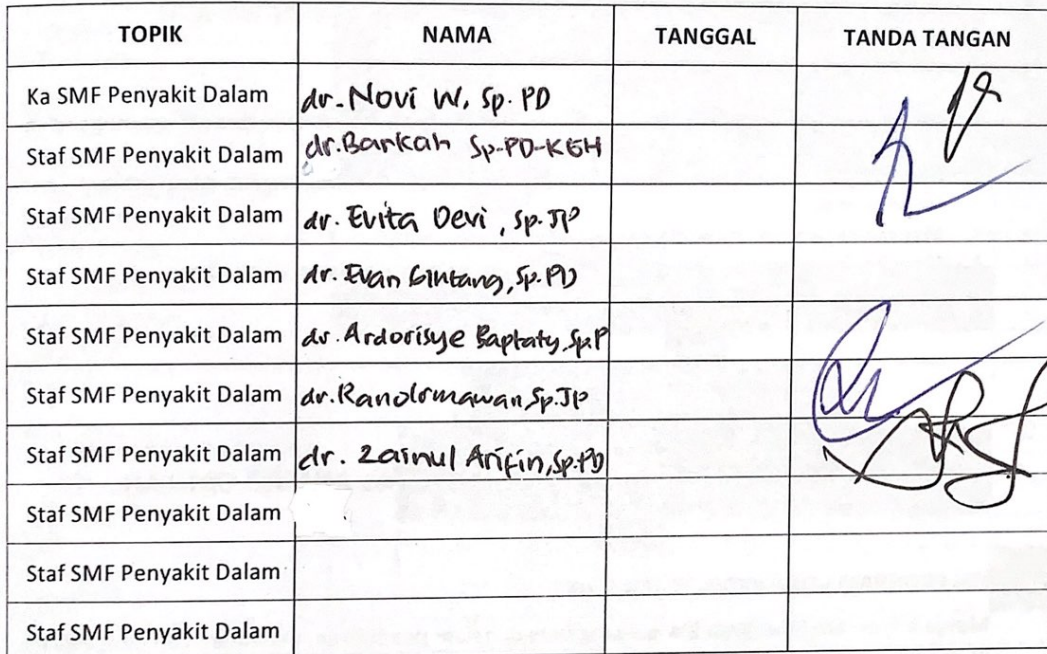 TOPIK NAMA TANGGAL TANDA TANGAN
Ka SMF Penyakit Dalam dr. Novi W, Sp. PD
Staf SMF Penyakit Dalam dr. Barkah Sp-PD-KGH
Staf SMF Penyakit Dalam dr. Evita Devi, Sp. JP
Staf SMF Penyakit Dalam dr. Evan Gintang, Sp. PD
Staf SMF Penyakit Dalam dr. Ardorisye Baptaty, Sp.P
Staf SMF Penyakit Dalam dr. Sp. JP
Staf SMF Penyakit Dalam dr. Zainul Arifin, Sp.PD
Staf SMF Penyakit Dalam
Staf SMF Penyakit Dalam
Staf SMF Penyakit Dalam